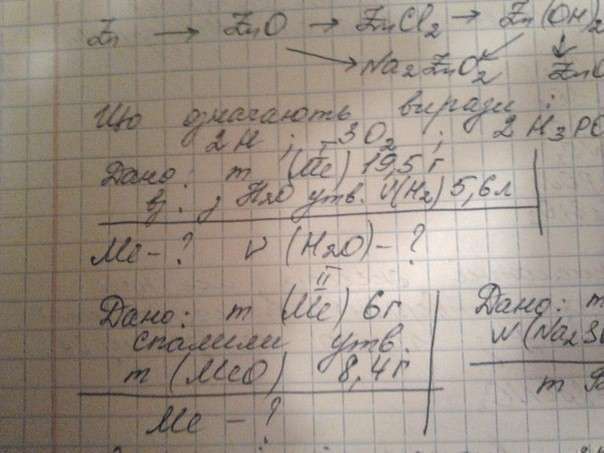 Zn → ZnO → ZnCl2 → Zn(OH)2
Na2ZnO2 ZnO
Що означають вирази:
2H; 3O2; 2H3PO
Дано: m (Me) 19,5 г
вз. з H2O утв. V(H2) 5,6 л
Me - ? ν (H2O) - ?
II
Дано: m (Me) 6г
спалили утв.
m (MeO) 8,4г
Me - ?
Дано: m
W(Na2S
m